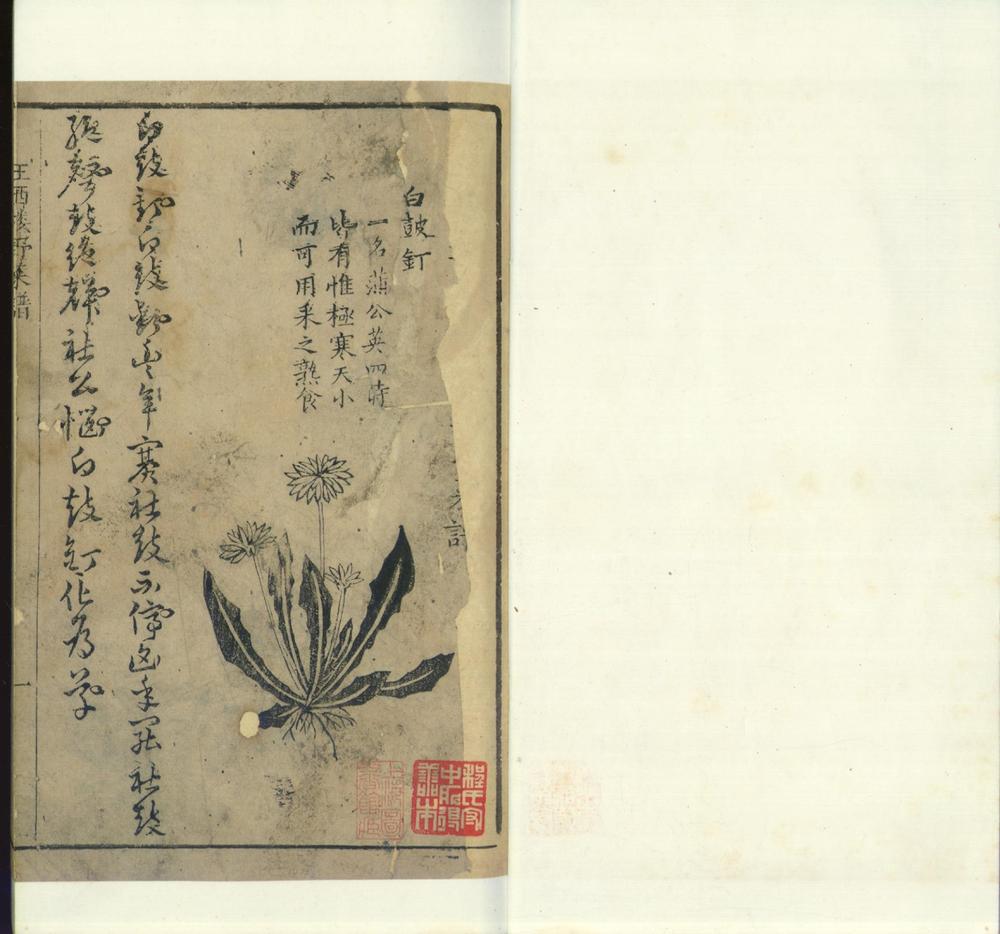 白鼓釘
一名蒲公英四時
皆有惟極寒天小
而可用采之熟食
白鼓釘白鼓釘豐年賽社鼓不停凶年罷社鼓
絕聲鼓絕聲社公惱白鼓釘化為草
王西樓野菜譜
一